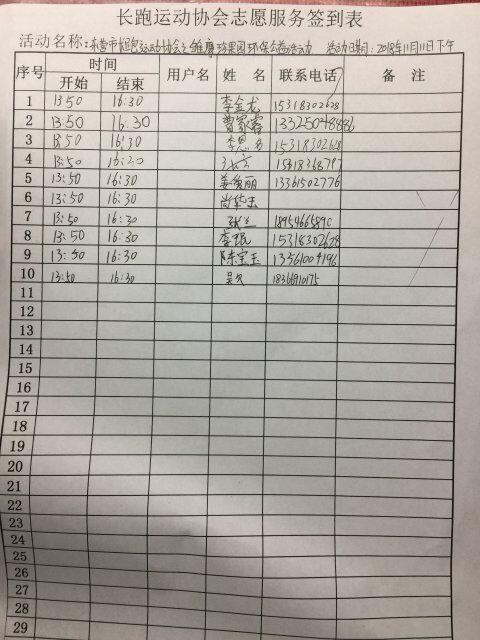 长跑运动协会志愿服务签到表
活动名称: 东营市 运动协会 环保公益活动 活动日期: 2018年11月11日下午
序号 时间 用户名 姓 名 联系电话 备 注
开始 结束
1 13:50 16:30 李金龙 15318302628
2 13:50 16:30 曹家蓉
3 13:50 16:30 李 15318302628
4 13:50 16:20
5 13:50 16:30 丽 13361502776
6 13:50 16:30 尚
7 13:50 16:30 张兰
8 13:50 16:30 李琨 15318302628
9 13:50 16:30 陈宝玉 13561004196
10 13:50 16:30 吴 18366910175
11
12
13
14
15
16
17
18
19
20
21
22
23
24
25
26
27
28
29